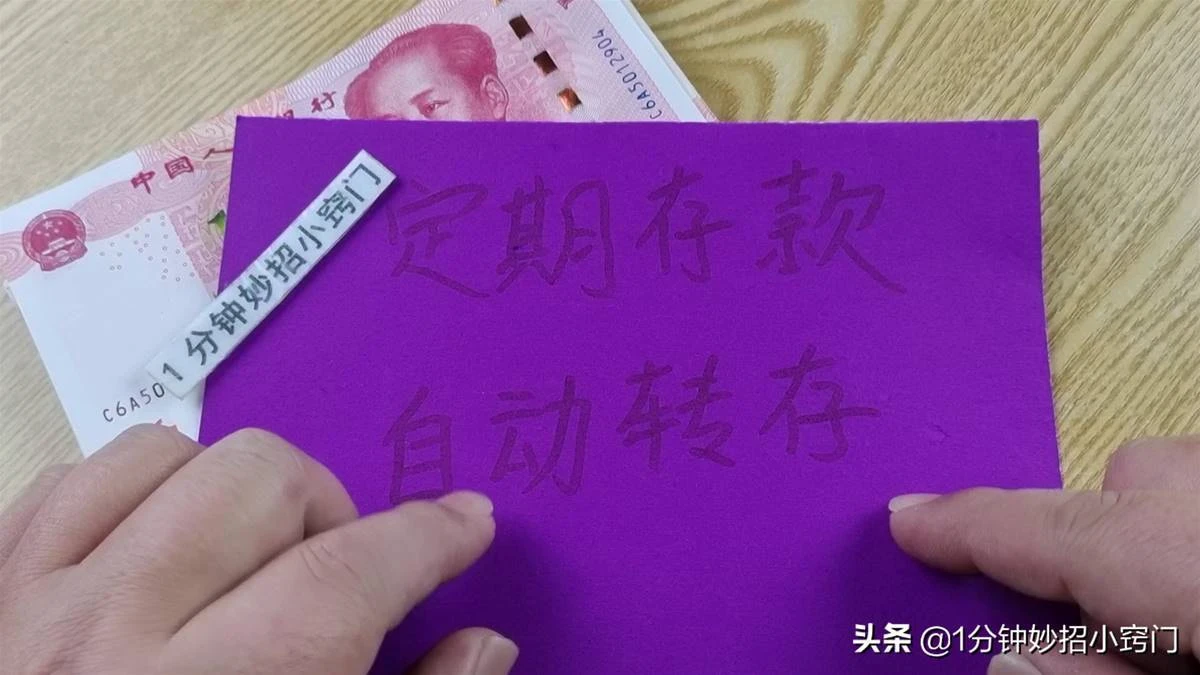 中国人
行
C6A5012904
1分钟妙招小窍门
定期存款
自动转存
C6A50
头条 @1分钟妙招小窍门